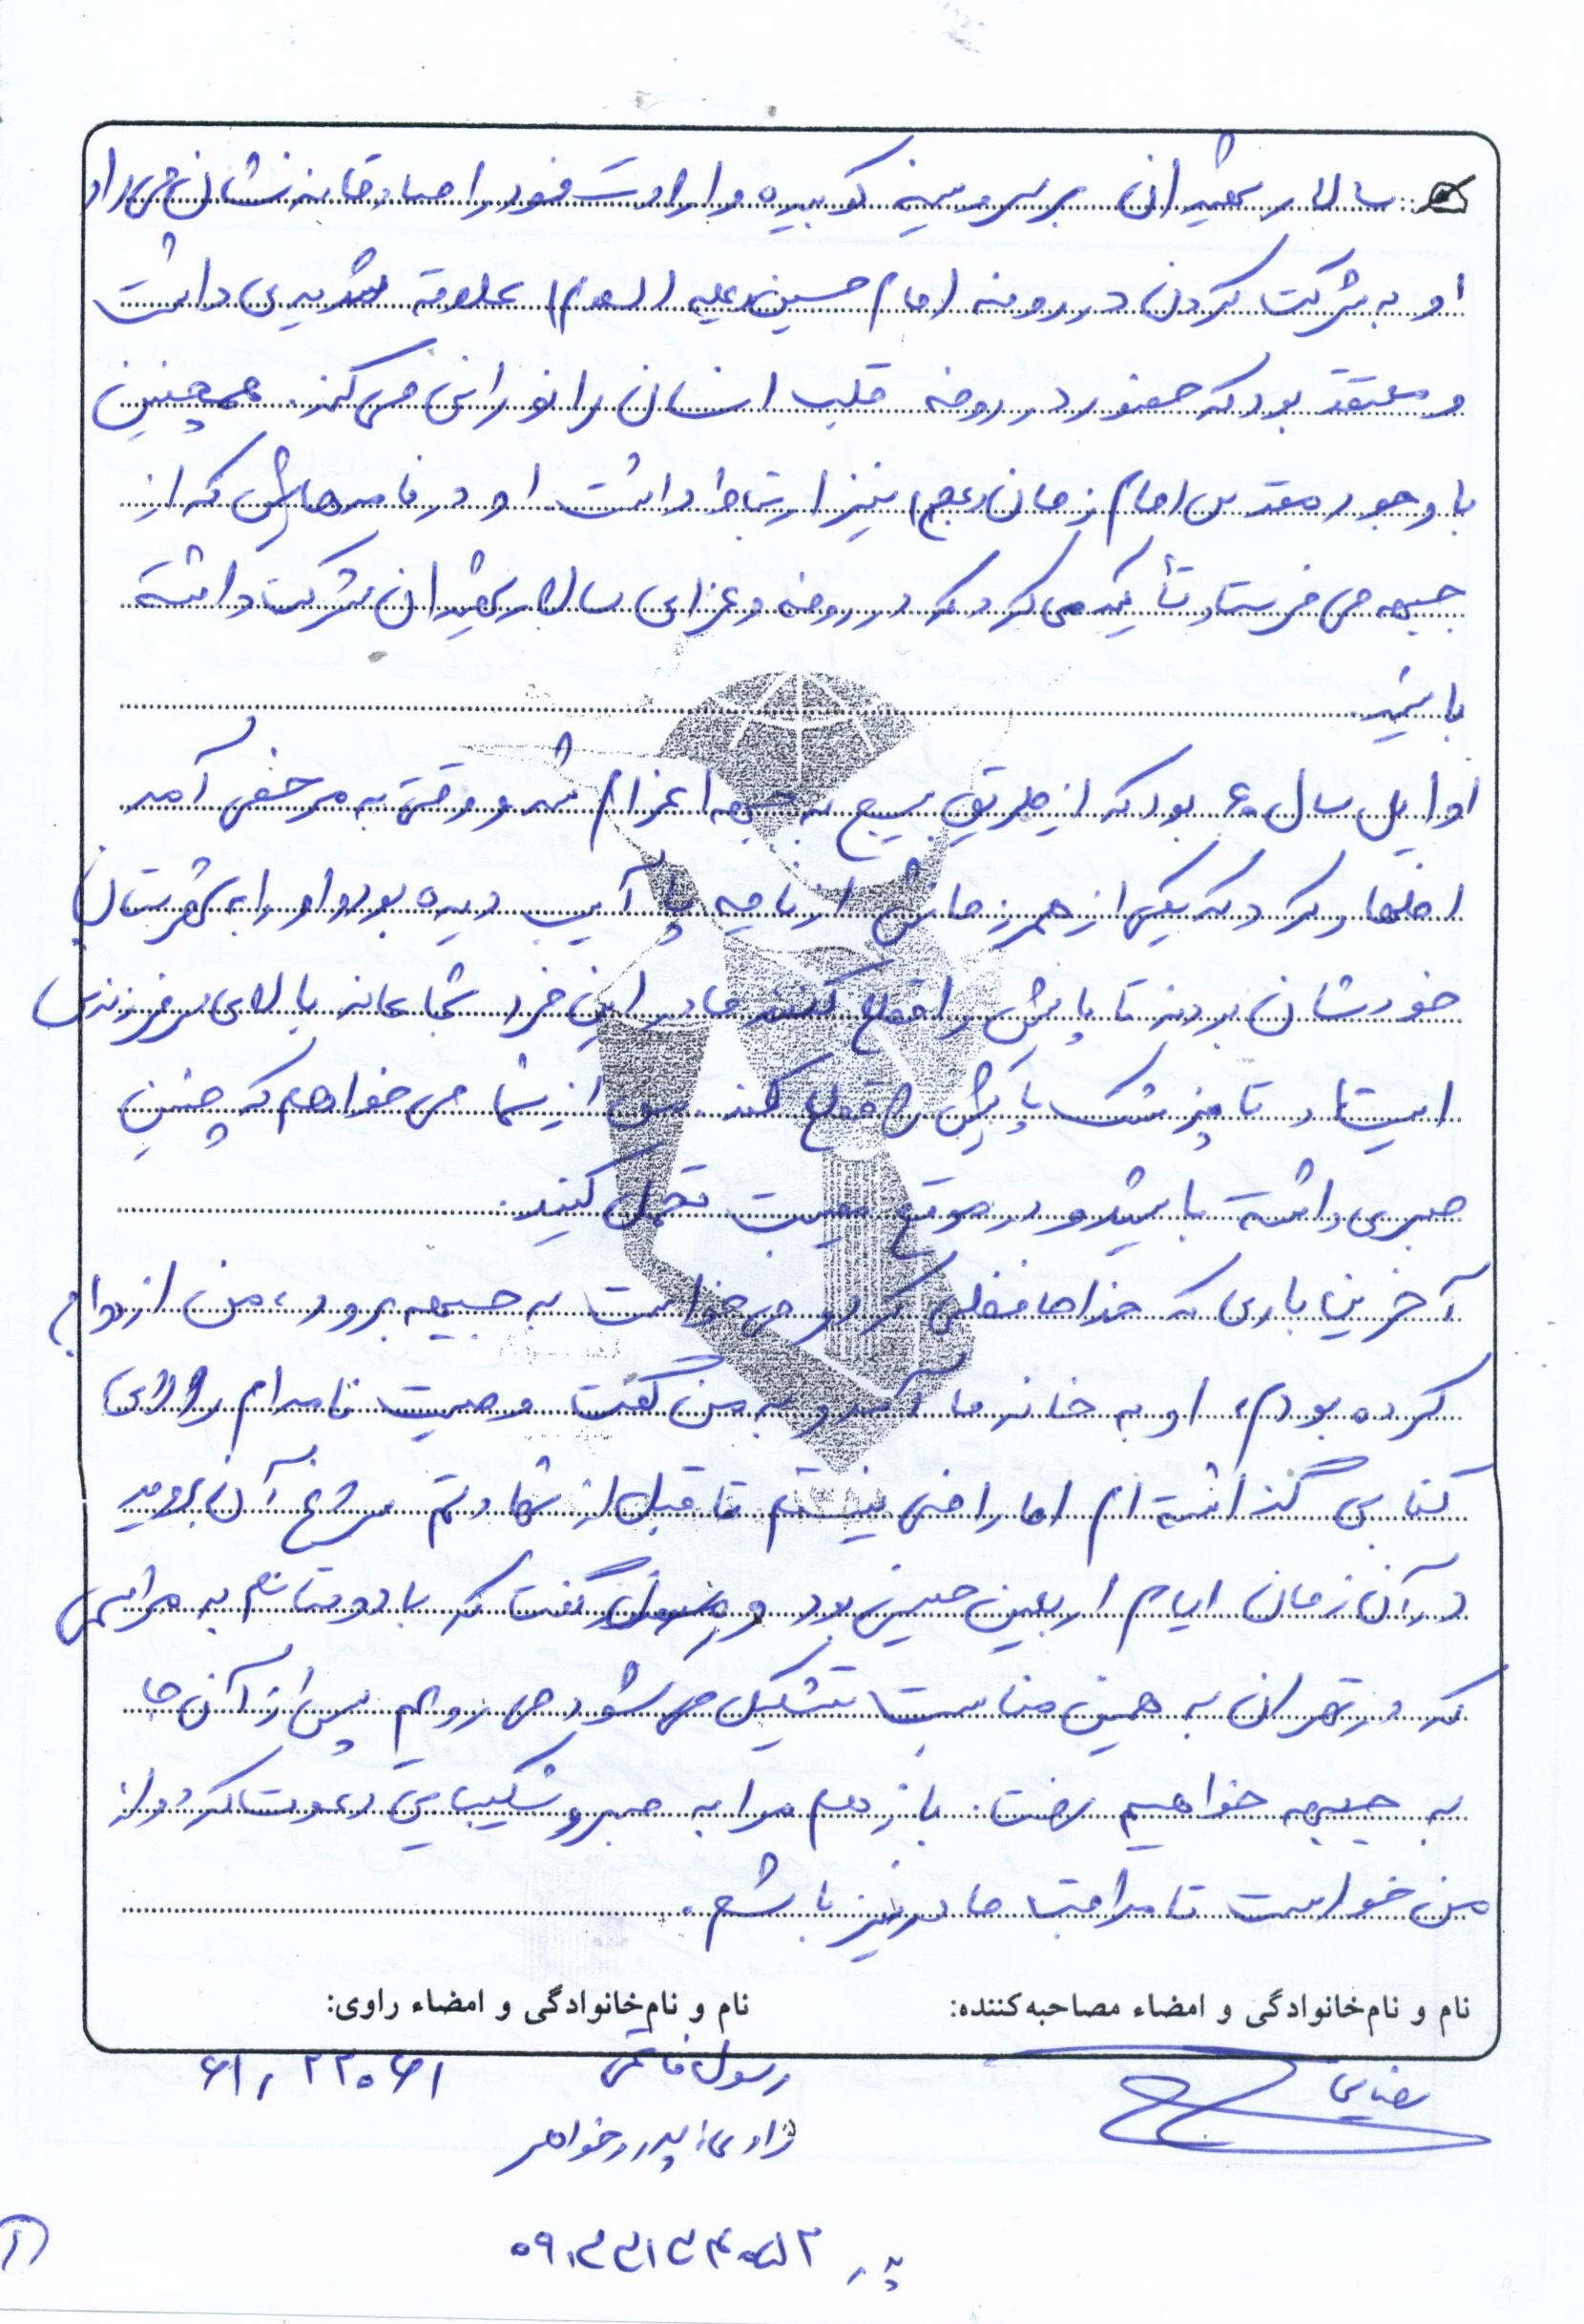 سالار شهیدان بر سر و سینه کوبیده و ارادت خود را صادقانه نشان می‌داد
او به شرکت کردن در روضه امام حسین (علیه السلام) علاقه شدیدی داشت
و معتقد بود که حضور در روضه قلب انسان را نورانی می‌کند. همچنین
با وجود مقدس امام زمان (عج) نیز ارتباط داشت. او در نامه‌هایش که از
جبهه می‌فرستاد تأکید می‌کرد که در روضه و عزای سالار شهیدان شرکت داشته
باشید.
اوایل سال ۶۰ بود که از طریق بسیج به جبهه اعزام شد و وقتی به مرخصی آمد
اظهار کرد که یکی از همرزمانش از ناحیه پا آسیب دیده بود و او را به شهرستان
خودشان بردند تا پایش را قطع کنند مادر این فرد شجاعانه بالای سر فرزندش
ایستاد تا پزشک پایش را قطع کند. من از شما می‌خواهم که چنین
صبری داشته باشید و در موقع مصیبت تحمل کنید.
آخرین باری که خداحافظی کرد و می‌خواست به جبهه برود، من ازدواج
کرده بودم، او به خانه ما آمد و به من گفت وصیت نامه‌ام را لای
کتابی گذاشته‌ام اما راضی نیستم تا قبل از شهادتم سراغ آن بروید
در آن زمان ایام اربعین حسینی بود و گفت که با دوستانم به مراسمی
که در تهران به همین مناسبت تشکیل می‌شود می‌رویم پس از آن جا
به جبهه خواهیم رفت. باز هم مرا به صبر و شکیبایی دعوت کرد و از
من خواست تا مراقب مادر نیز باشم.
نام و نام‌خانوادگی و امضاء مصاحبه‌کننده: نام و نام‌خانوادگی و امضاء راوی:
رضایی رسول
راوی: پدر و خواهر